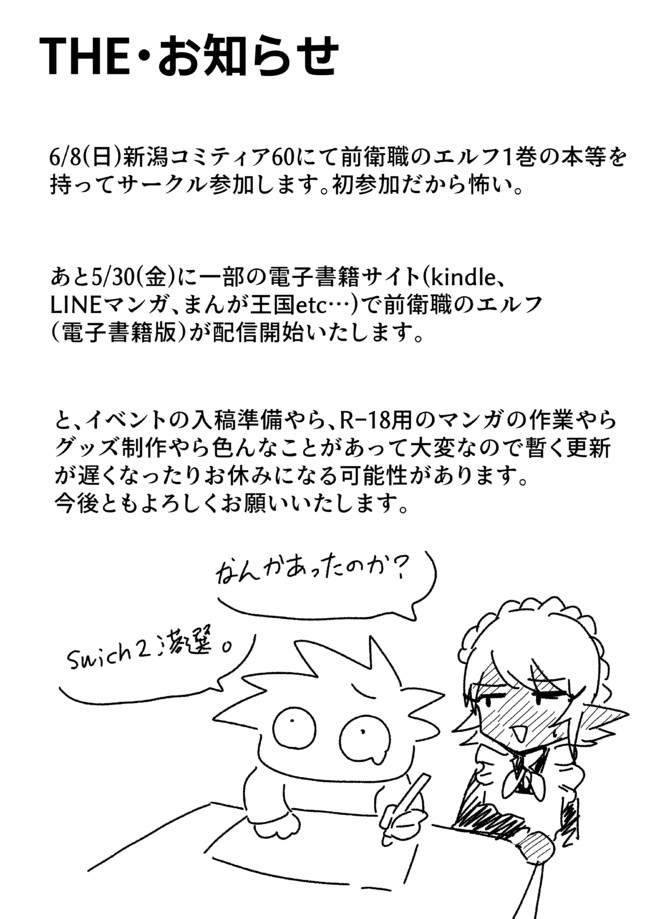 THE・お知らせ
6/8(日)新潟コミティア60にて前衛職のエルフ1巻の本等を
持ってサークル参加します。初参加だから怖い。
あと5/30(金)に一部の電子書籍サイト(kindle、
LINEマンガ、まんが王国etc…)で前衛職のエルフ
(電子書籍版)が配信開始いたします。
と、イベントの入稿準備やら、R-18用のマンガの作業やら
グッズ制作やら色んなことがあって大変なので暫く更新
が遅くなったりお休みになる可能性があります。
今後ともよろしくお願いいたします。
なんかあったのか?
Swich2落選。